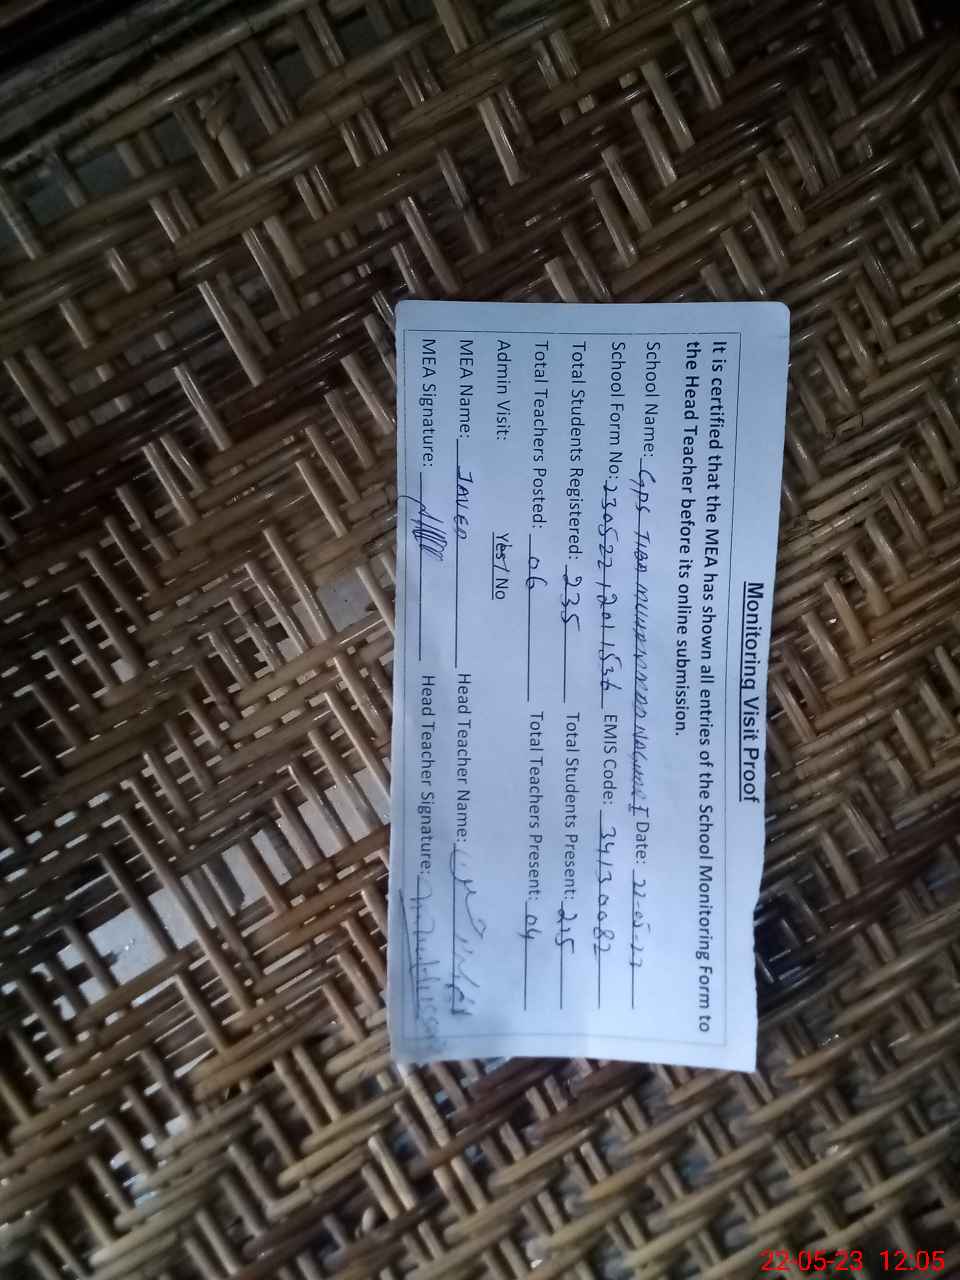 Monitoring Visit Proof
It is certified that the MEA has shown all entries of the School Monitoring Form to
the Head Teacher before its online submission.
School Name: GPS TIBA Date: 22-05-23
School Form No: EMIS Code: 34130082
Total Students Registered: 235 Total Students Present: 215
Total Teachers Posted: 06 Total Teachers Present: 04
Admin Visit: Yes / No
MEA Name: JAVED Head Teacher Name:
MEA Signature: Head Teacher Signature:
22-05-23 12:05